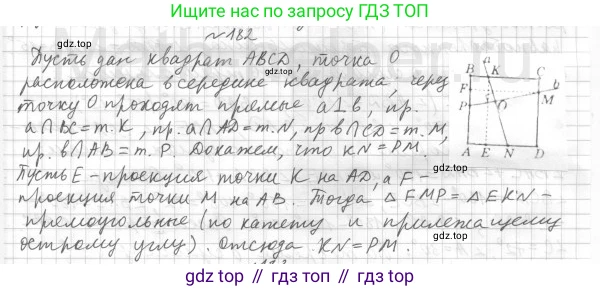 Ищите нас по запросу ГДЗ ТОП
№ 182
gdz.top
gdz.top
Пусть дан квадрат ABCD, точка O
расположена в середине квадрата, через
точку O проходят прямые a⊥b, пр.
a∩BC=т.K, пр. a∩AD=т.N, пр b∩CD=т.M,
пр. b∩AB=т.P. Докажем, что KN=PM.
Пусть E-проекция точки K на AD, а F-
проекция точки M на AB. Тогда △FMP=△EKN-
прямоугольные (по катету и прилежащему
острому углу). Отсюда KN=PM.
a
B K C
F b
M
P O
A E N D
gdz.top
gdz.top
gdz.top // гдз топ // gdz top // гдз.топ